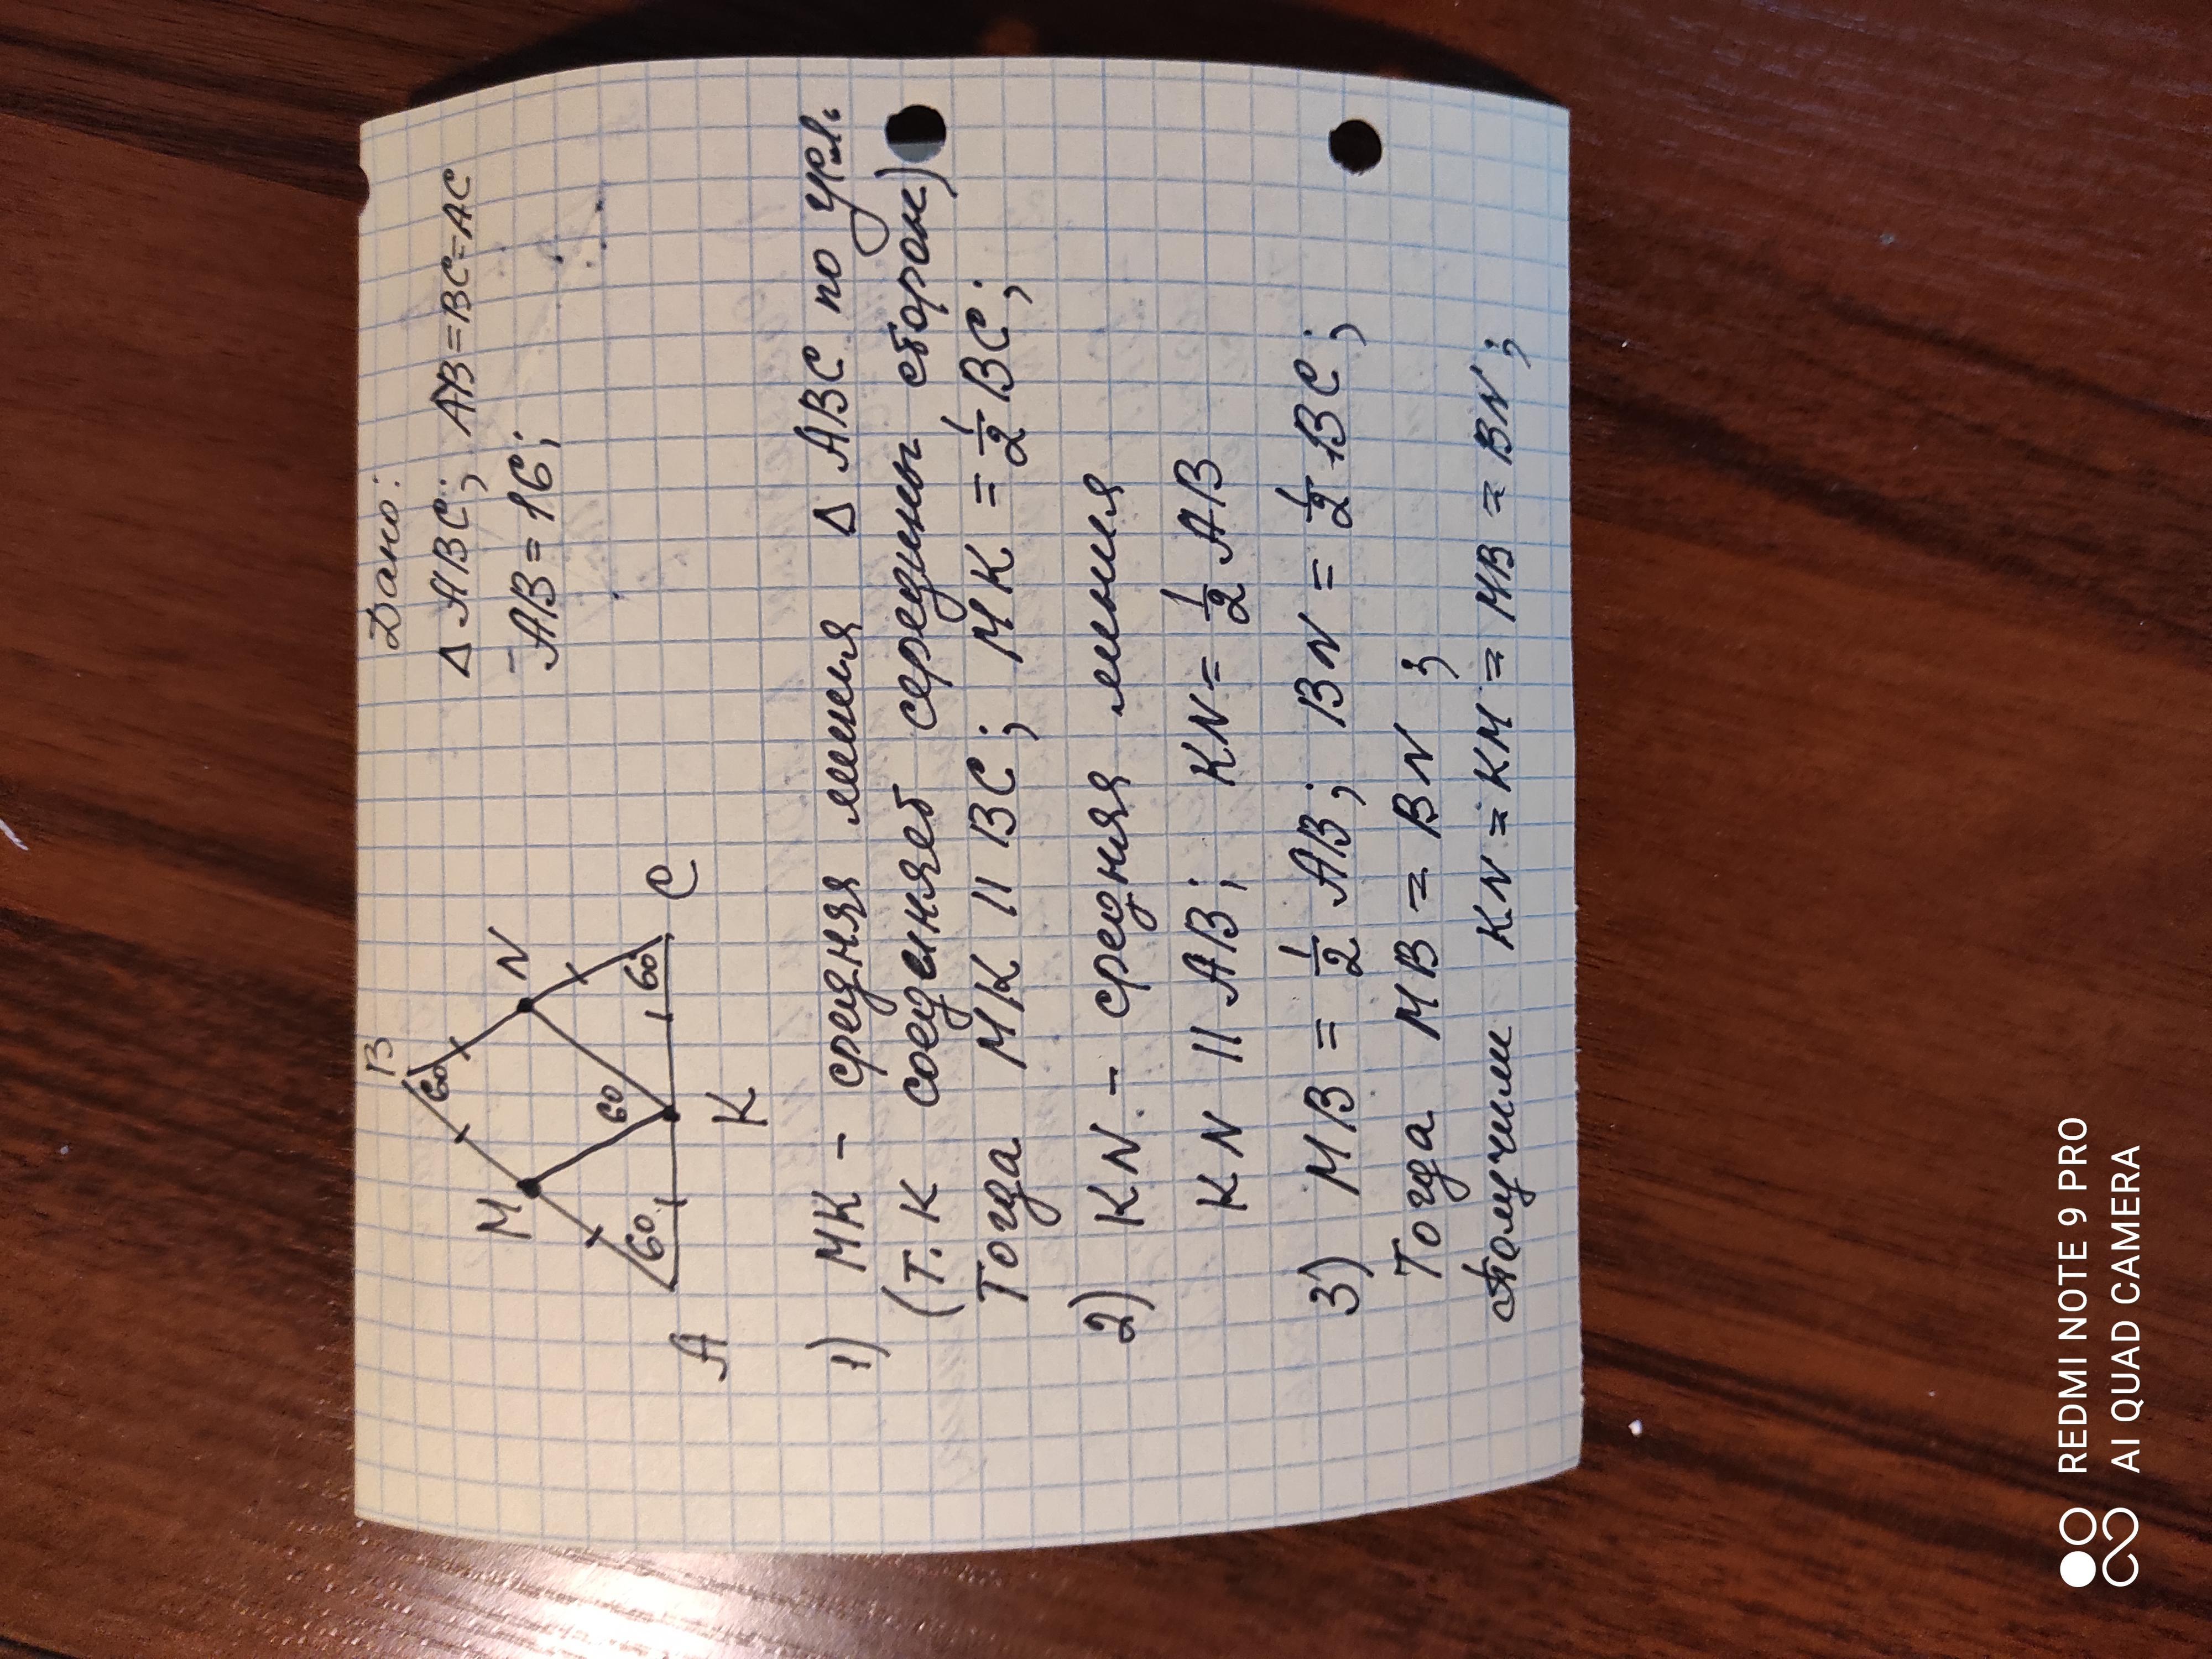 Дано:
Δ ABC; AB=BC=AC
AB=16;
B
60
M
N
60
60
60
A
K
C
1) MK – средняя линия Δ ABC по усл.
(т.к соединяет середины сторон)
Тогда MK || BC; MK = 1/2 BC;
2) KN – средняя линия
KN || AB; KN = 1/2 AB
3) MB = 1/2 AB; BN = 1/2 BC;
Тогда MB = BN ;
Получим KN = KM = MB = BN;
REDMI NOTE 9 PRO
AI QUAD CAMERA